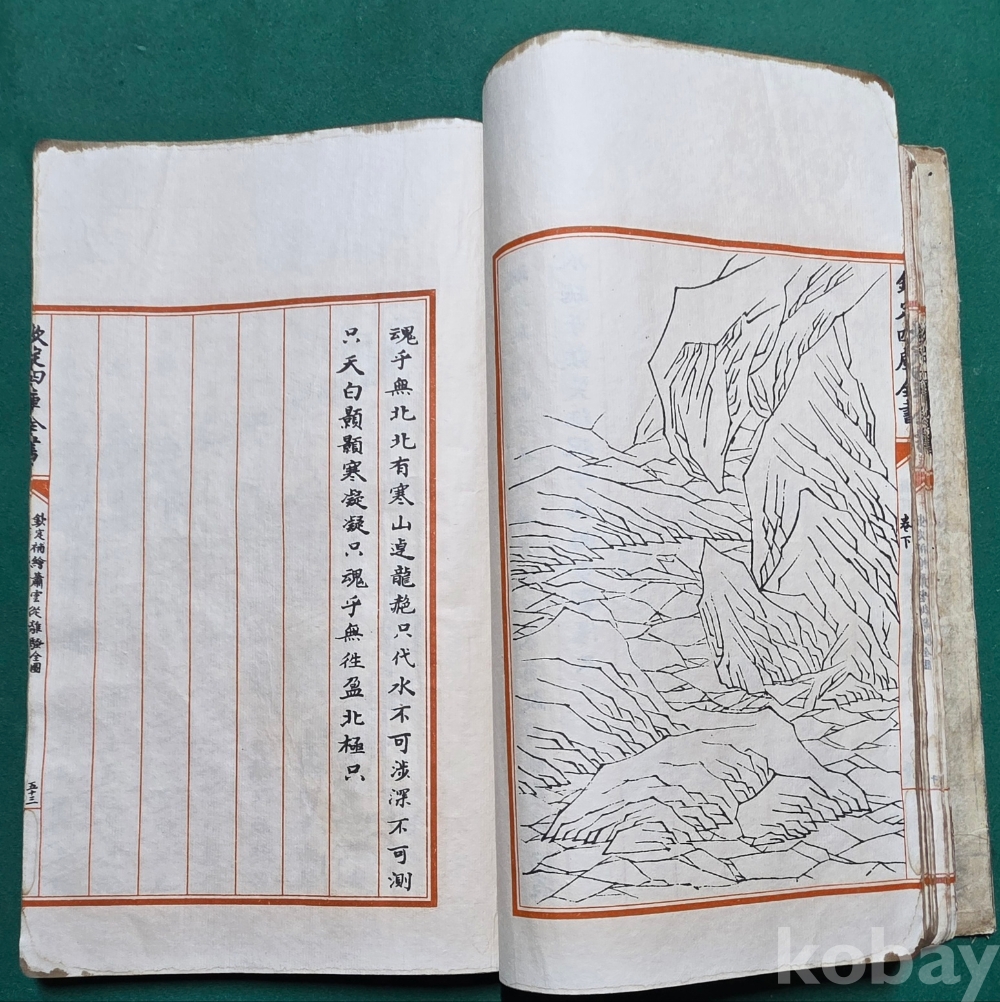 欽定四庫全書
卷下
魂乎無北北有寒山逴龍赩只代水不可涉深不可測
只天白顥顥寒凝凝只魂乎無徃盈北極只
欽定四庫全書
欽定補繪蕭雲從離騷全圖
五十三
kobay